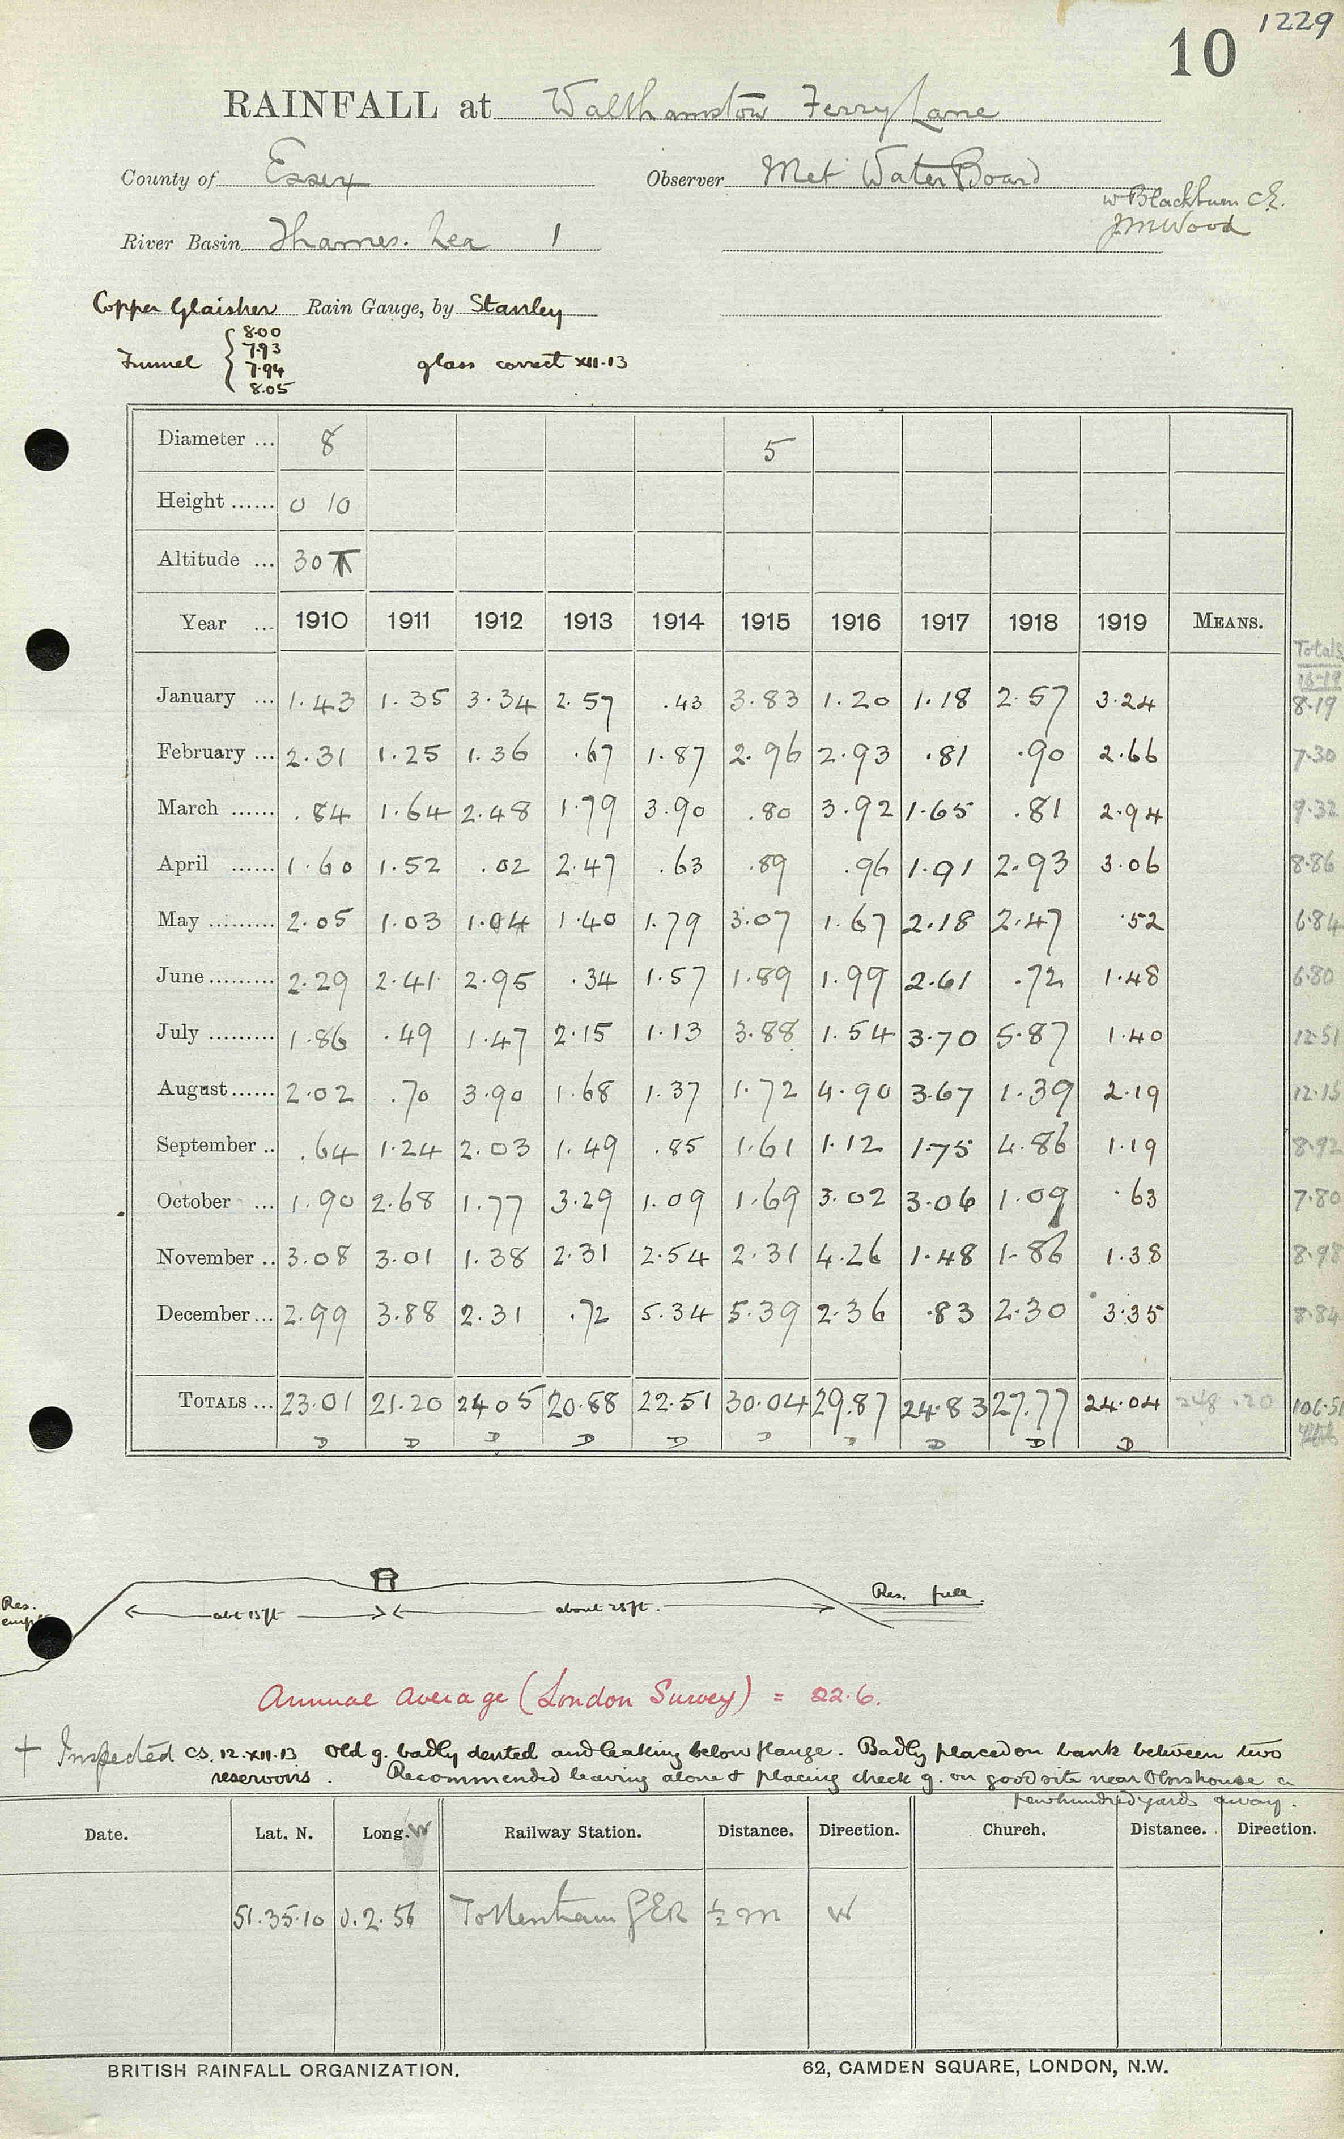 1229
10
RAINFALL at Walthamstow Ferry Lane
County of Essex Observer Met Water Board
W Blackburn C.E.
River Basin Thames. Lea 1 J M Wood
Copper Glaisher Rain Gauge, by Stanley
Funnel { 8.00 7.93 7.94 8.05 glass correct XII.13
Diameter ... 8 5
Height ...... 0 10
Altitude ... 30
Year ... 1910 1911 1912 1913 1914 1915 1916 1917 1918 1919 MEANS. Totals 16-19
January ... 1.43 1.35 3.34 2.57 .43 3.83 1.20 1.18 2.57 3.24 8.19
February ... 2.31 1.25 1.36 .67 1.87 2.96 2.93 .81 .90 2.66 7.30
March ...... .84 1.64 2.48 1.79 3.90 .80 3.92 1.65 .81 2.94 9.32
April ...... 1.60 1.52 .02 2.47 .63 .89 .96 1.91 2.93 3.06 8.86
May ......... 2.05 1.03 1.04 1.40 1.79 3.07 1.67 2.18 2.47 .52 6.84
June ......... 2.29 2.41 2.95 .34 1.57 1.89 1.99 2.61 .72 1.48 6.80
July ......... 1.86 .49 1.47 2.15 1.13 3.88 1.54 3.70 5.87 1.40 12.51
August ...... 2.02 .70 3.90 1.68 1.37 1.72 4.90 3.67 1.39 2.19 12.15
September .. .64 1.24 2.03 1.49 .85 1.61 1.12 1.75 4.86 1.19 8.92
October ... 1.90 2.68 1.77 3.29 1.09 1.69 3.02 3.06 1.09 .63 7.80
November .. 3.08 3.01 1.38 2.31 2.54 2.31 4.26 1.48 1.86 1.38 8.98
December ... 2.99 3.88 2.31 .72 5.34 5.39 2.36 .83 2.30 3.35 8.84
TOTALS ... 23.01 21.20 24.05 20.88 22.51 30.04 29.87 24.83 27.77 24.04 248.20 106.51
D D D D D D D D D D
Res. empty abt 15ft about 25ft. Res. full.
Annual Average (London Survey) = 22.6.
+ Inspected CS. 12.XII.13 Old g. badly dented and leaking below flange. Badly placed on bank between two
reservoirs. Recommended leaving alone & placing check g. on good site near Obrs house a
few hundred yards away.
Date. Lat. N. Long. W Railway Station. Distance. Direction. Church. Distance. Direction.
51.35.10 0.2.56 Tottenham GER ½ m W
BRITISH RAINFALL ORGANIZATION. 62, CAMDEN SQUARE, LONDON, N.W.